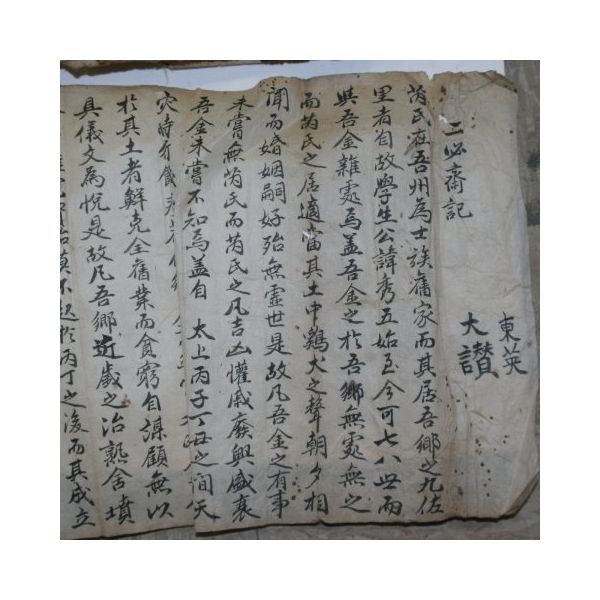 東英
大讚
三必齋記
芮氏在吾州為士族舊家而其居吾鄉之九佐
里者自故學生公諱秀五始至今可七八世而
與吾金雜處焉盖吾金之於吾鄉無處無之
而芮氏之居適當其土中鷄犬之聲朝夕相
聞而婚姻嗣好殆無虛世是故凡吾金之有事
未嘗無芮氏而芮氏之凡吉凶懽戚廢興盛衰
吾金未嘗不知焉盖自 太上丙子丁丑之間天
灾時行饑
於其土者鮮克全舊業而貧窮自謀顧無以
具儀文為悅是故凡吾鄉近歲之治塾舍墳
不起於丙丁之後而其成立